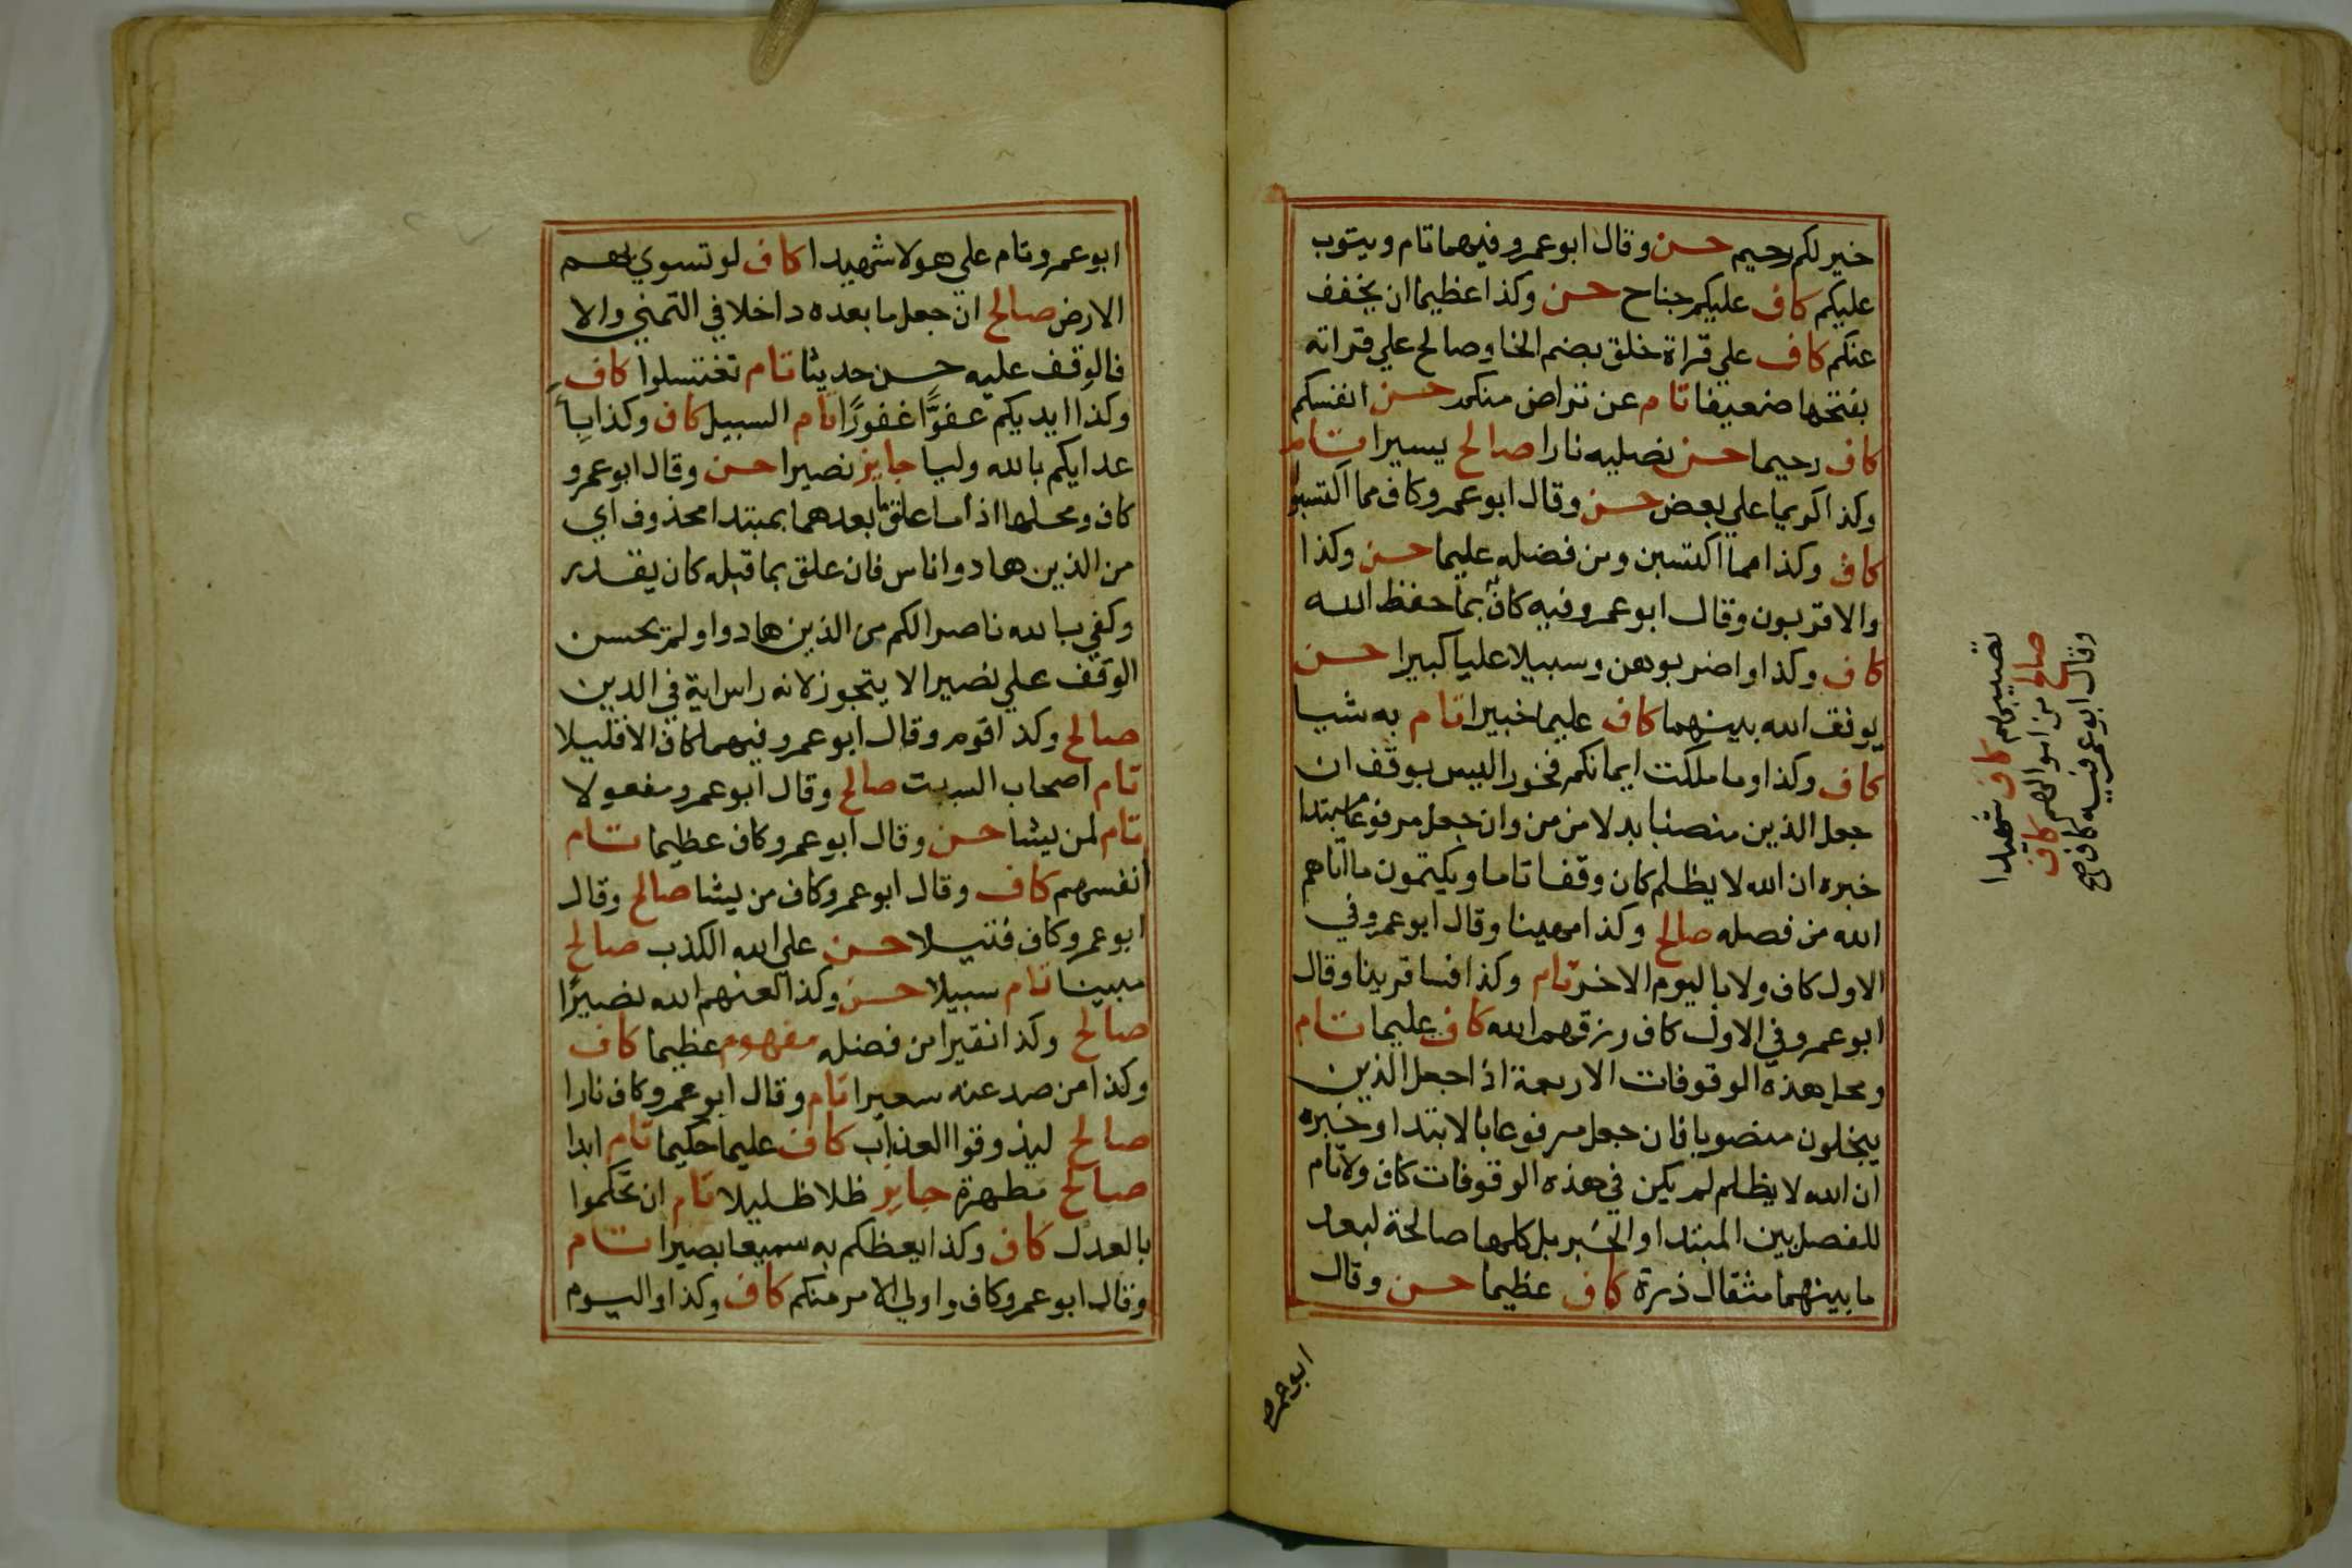 خير لكم رحيم حسن وقال ابوعمرو فيهما تام ويتوب
عليكم كاف عليكم جناح حسن وكذا عظيما ان يخفف
عنكم كاف علي قراة خلق بضم الخا وصالح علي قراته
بفتحها ضعيفا تام عن تراض منكم حسن انفسكم
كاف رحيما حسن نصليه نارا صالح يسيرا تام
وكذا كريما علي بعض حسن وقال ابوعمرو كاف مما اكتسبوا
كاف وكذا مما اكتسبن ومن فضله عليما حسن وكذا
والاقربون وقال ابوعمرو فيه كاف بما حفظ الله
كاف وكذا واضربوهن وسبيلا عليا كبيرا حسن
يوفق الله بينهما كاف عليما خبيرا تام به شيا
كاف وكذا وما ملكت ايمانكم فخورا ليس بوقف ان
جعل الذين منصبا بدلا من من وان جعل مرفوعا مبتدا
خبره ان الله لا يظلم كان وقفا تاما ويكتمون ما اتاهم
الله من فضله صالح وكذا مهينا وقال ابوعمرو في
الاول كاف ولا باليوم الاخر تام وكذا فسا قرينا وقال
ابوعمرو في الاول كاف رزقهم الله كاف عليما تام
ومحل هذه الوقوفات الاربعة اذا جعل الذين
يبخلون منصوبا فان جعل مرفوعا بالابتدا وخبره
ان الله لا يظلم لم يكن في هذه الوقوفات كاف ولا تام
للفصل بين المبتدا والخبر بل كلها صالحة لبعد
ما بينهما مثقال ذرة كاف عظيما حسن وقال
ابوعمرو
نصيبهم كاف شهيدا
صالح من اموالهم كاف
وقال ابوعمرو فيه كاف صح
ابوعمرو تام علي هولا شهيدا كاف لو تسوي بهم
الارض صالح ان جعل ما بعده داخلا في التمني والا
فالوقف عليه حسن حديثا تام تغتسلوا كاف
وكذا ايديكم عفوًّا غفورًا تام السبيل كاف وكذا با
عدايكم بالله وليا جايز نصيرا حسن وقال ابوعمرو
كاف ومحلها اذا ما علق ما بعدهما بمبتدا محذوف اي
من الذين هادوا ناس فان علق بما قبله كان يقدر
وكفي بالله ناصرا لكم من الذين هادوا ولم يحسن
الوقف علي نصيرا لا يتجوز لانه راس اية في الدين
صالح وكذا اقوم وقال ابوعمرو فيهما كاف الا قليلا
تام اصحاب السبت صالح وقال ابوعمرو مفعولا
تام لمن يشا حسن وقال ابوعمرو كاف عظيما تام
انفسهم كاف وقال ابوعمرو كاف من يشا صالح وقال
ابوعمرو كاف فتيلا حسن علي الله الكذب صالح
مبينا تام سبيلا حسن وكذا لعنهم الله نصيرًا
صالح وكذا نقيرا من فضله مفهوم عظيما كاف
وكذا من صد عنه سعيرا تام وقال ابوعمرو كاف نارا
صالح ليذوقوا العذاب كاف عليما حكيما تام ابدا
صالح مطهرة جايز ظلا ظليلا تام ان تحكموا
بالعدل كاف وكذا يعظكم به سميعا بصيرا تام
وقال ابوعمرو كاف واولي الامر منكم كاف وكذا واليوم